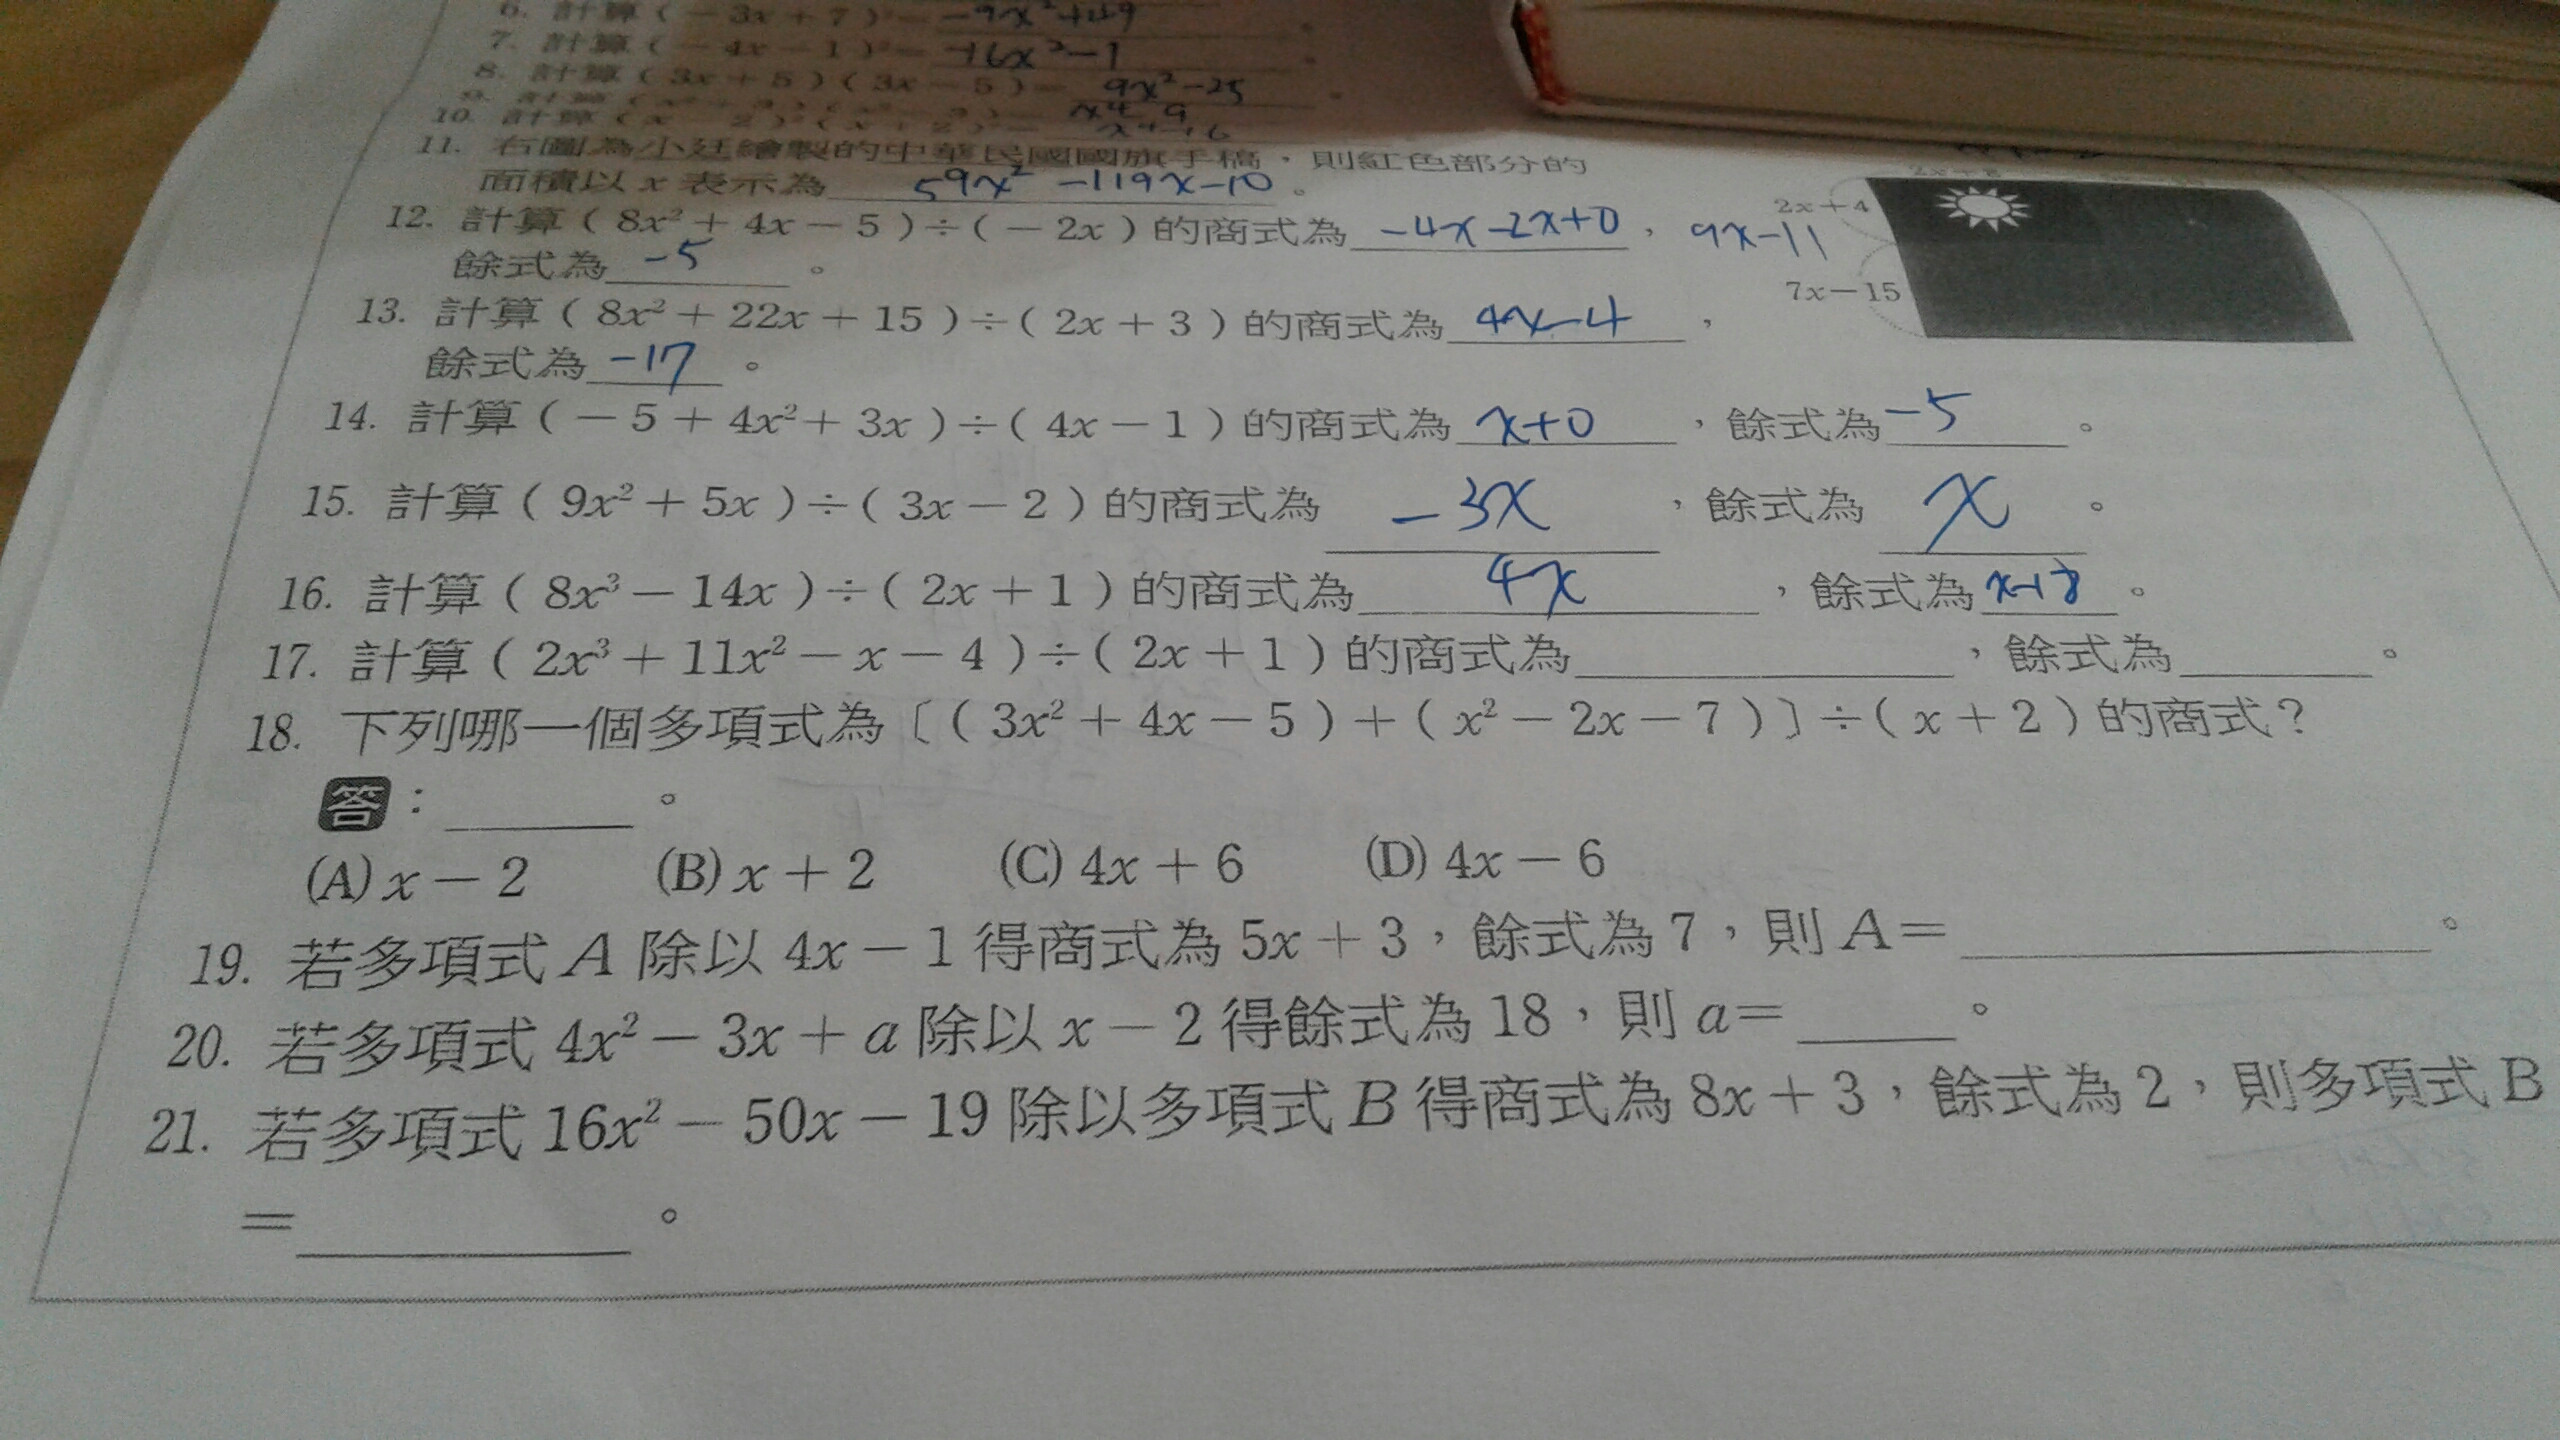 6. 計算(-3x+7)²= -9x²+49 。
7. 計算(-4x-1)²= +6x²-1 。
8. 計算(3x+5)(3x-5)= 9x²-25 。
9. 計算
10. 計算
11. 右圖為小廷繪製的中華民國國旗手稿,則紅色部分的
面積以 x 表示為 59x²-119x-10 。
2x+4
9x-11
7x-15
12. 計算(8x²+4x-5)÷(-2x)的商式為 -4x-2x+0 ,
餘式為 -5 。
13. 計算(8x²+22x+15)÷(2x+3)的商式為 4x-4 ,
餘式為 -17 。
14. 計算(-5+4x²+3x)÷(4x-1)的商式為 x+0 ,餘式為 -5 。
15. 計算(9x²+5x)÷(3x-2)的商式為 -3x ,餘式為 x 。
16. 計算(8x³-14x)÷(2x+1)的商式為 4x ,餘式為 。
17. 計算(2x³+11x²-x-4)÷(2x+1)的商式為 ,餘式為 。
18. 下列哪一個多項式為〔(3x²+4x-5)+(x²-2x-7)〕÷(x+2)的商式?
答: 。
(A) x-2 (B) x+2 (C) 4x+6 (D) 4x-6
19. 若多項式 A 除以 4x-1 得商式為 5x+3,餘式為 7,則 A= 。
20. 若多項式 4x²-3x+a 除以 x-2 得餘式為 18,則 a= 。
21. 若多項式 16x²-50x-19 除以多項式 B 得商式為 8x+3,餘式為 2,則多項式 B
= 。